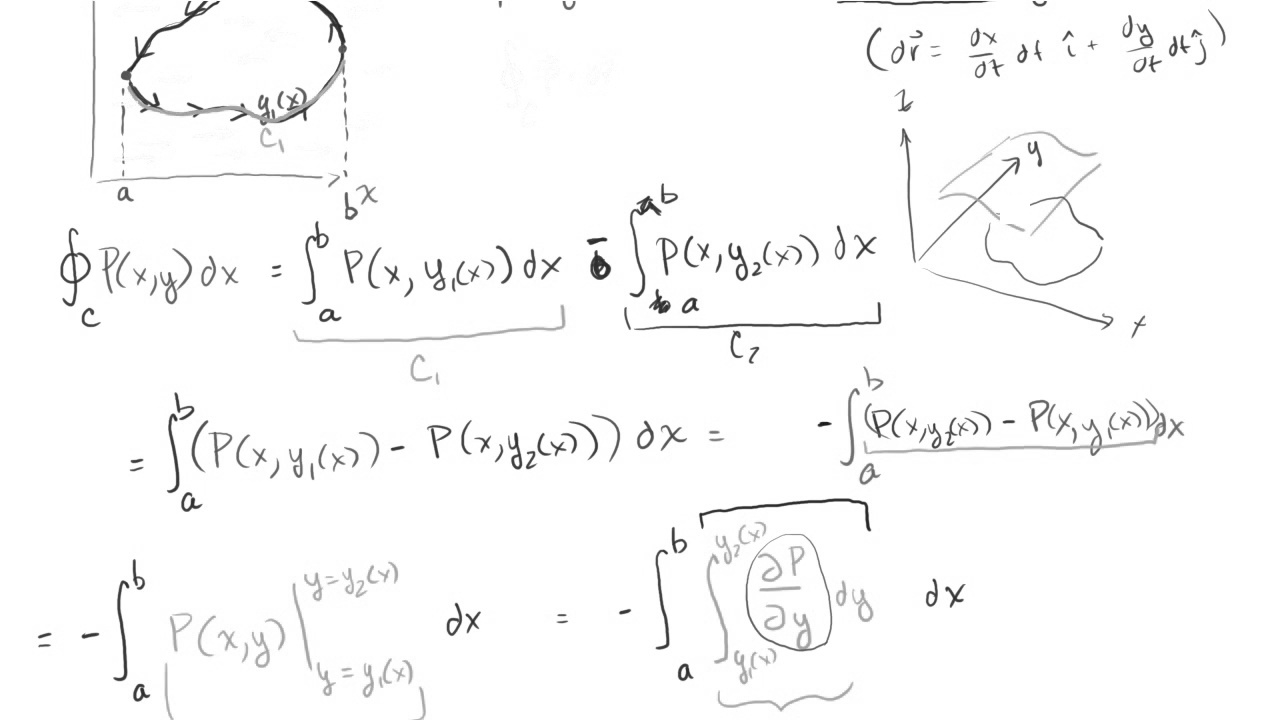 (dr⃗ = dx/dt dt î + dy/dt dt ĵ)
y₁(x)
C₁
a
b
x
z
y
x
∮_C P(x,y) dx = ∫_a^b P(x, y₁(x)) dx - ∫_a^b P(x, y₂(x)) dx
C₁
C₂
= ∫_a^b (P(x, y₁(x)) - P(x, y₂(x))) dx = -∫_a^b (P(x, y₂(x)) - P(x, y₁(x))) dx
= -∫_a^b P(x,y) |_{y = y₁(x)}^{y = y₂(x)} dx = -∫_a^b ∫_{y₁(x)}^{y₂(x)} ∂P/∂y dy dx